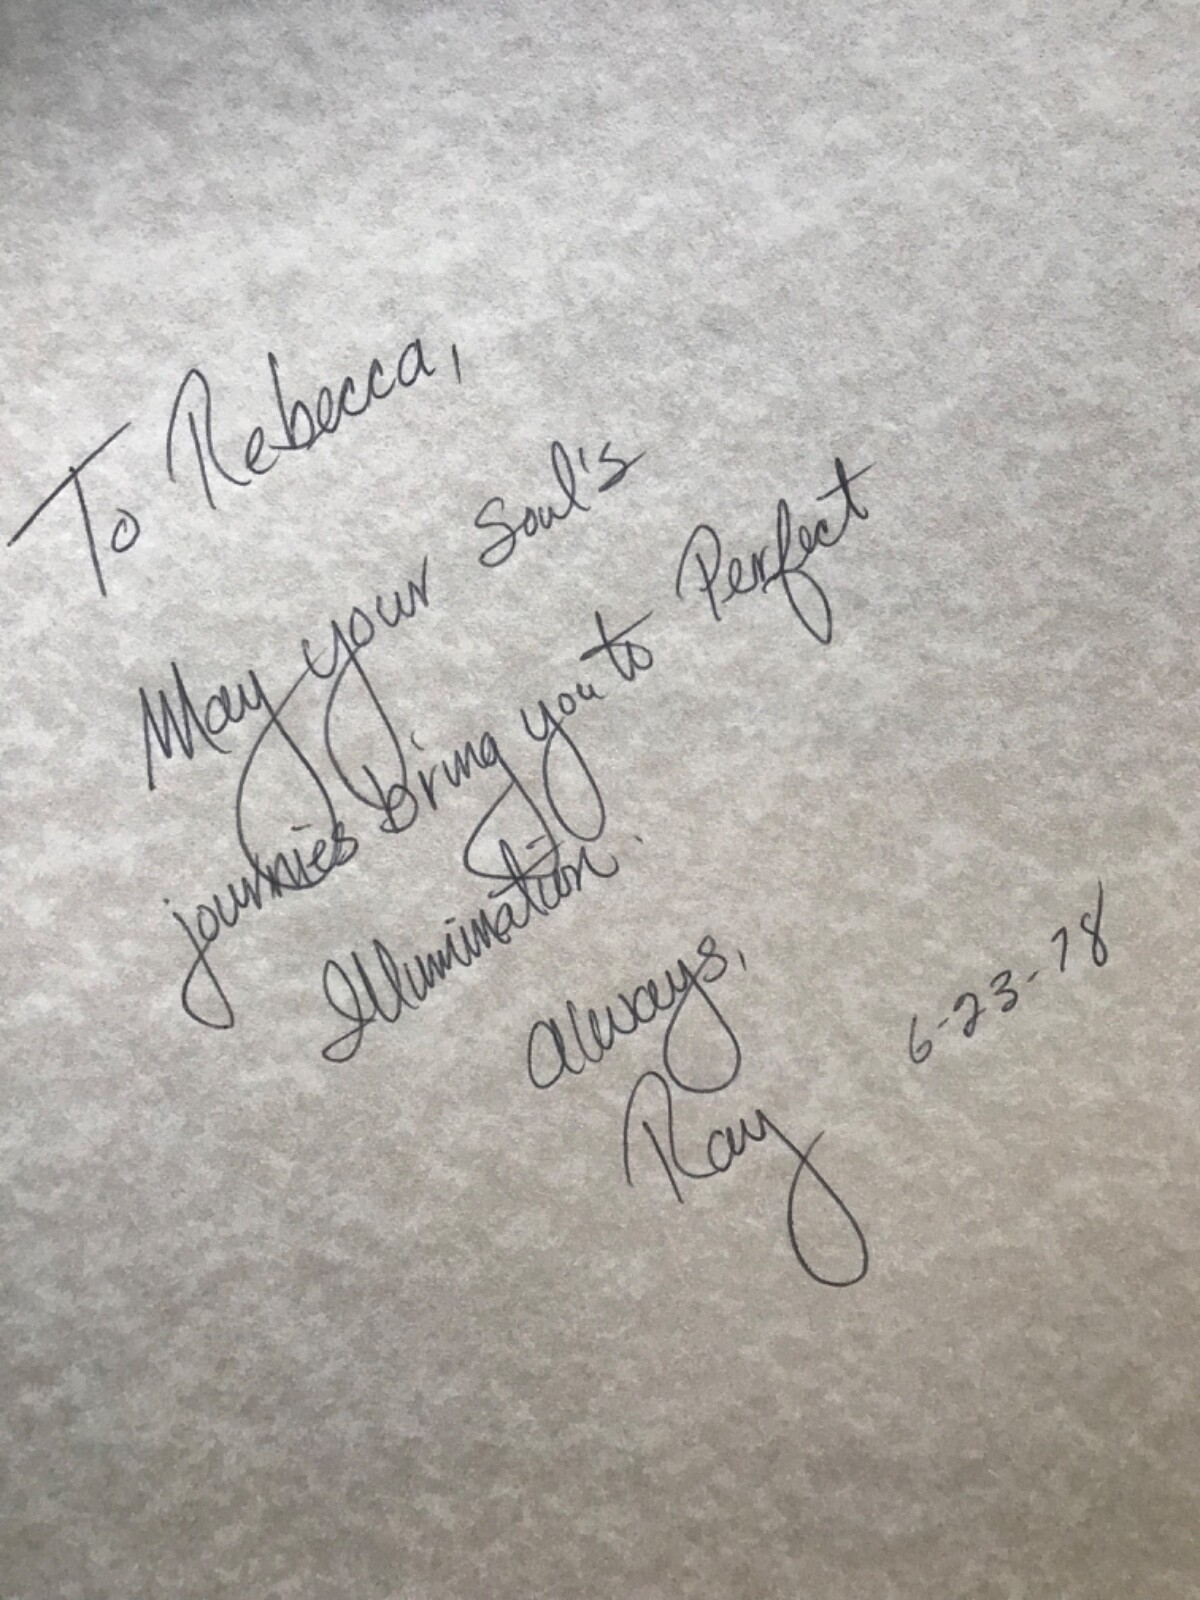 To Rebecca,
May your soul's
journies bring you to Perfect
Illumination.
Always,
Ray
6-23-78